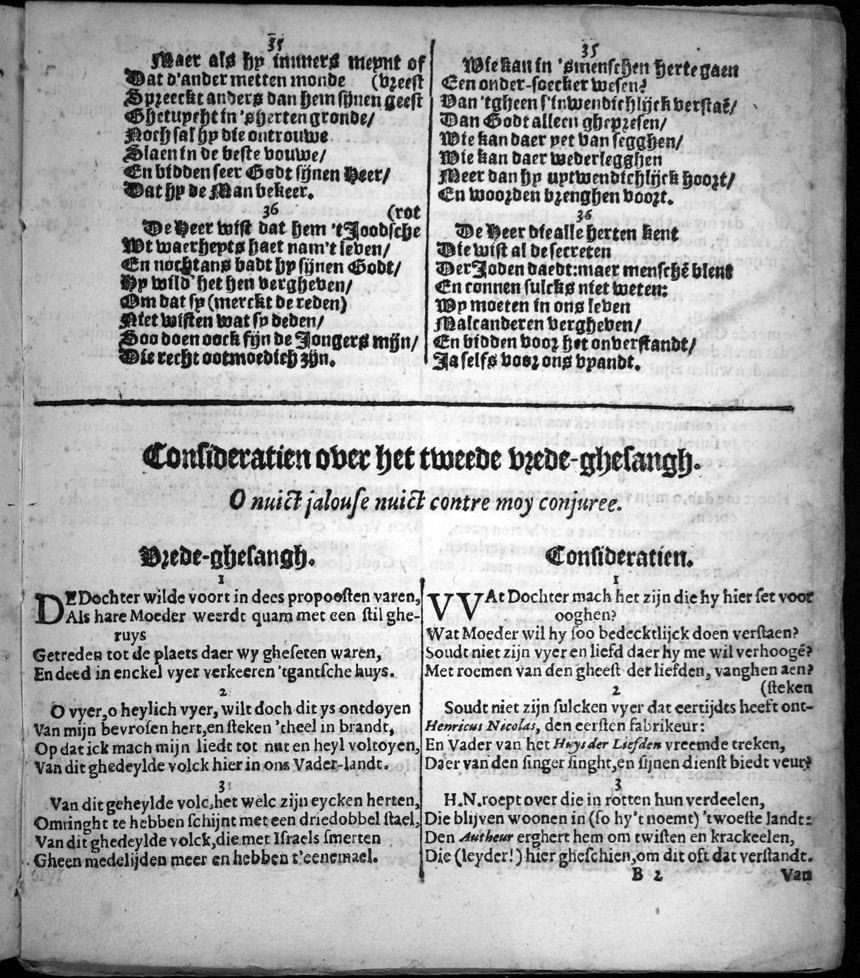 35
Maer als hy immers meynt of
Dat d'ander metten monde (vreest
Spreeckt anders dan hem sijnen geest
Ghetuyght in 's herten gronde/
Noch sal hy die ontrouwe
Slaen in de beste vouwe/
En bidden seer Godt sijnen Heer/
Dat hy de Man bekeer.
36 (rot
De Heer wist dat hem 't Joodsche
Wt waerheyts haet nam't leven/
En nochtans badt hy sijnen Godt/
Hy wild' het hen vergheven/
Om dat sy (merckt de reden)
Niet wisten wat sy deden/
Soo doen oock sijn de Jongers mijn/
Die recht ootmoedich zijn.
35
Wie kan in 'smenschen herte gaen
Een onder-soecker wesen?
Van 'tgheen s'inwendichlijck verstaē/
Dan Godt alleen ghepresen/
Wie kan daer yet van segghen/
Wie kan daer wederlegghen
Meer dan hy uytwendichlijck hoort/
En woorden brenghen voort.
36
De Heer die alle herten kent
Die wist al de secreten
Der Joden daedt: maer menschē blent
En connen sulcks niet weten:
Wy moeten in ons leven
Malcanderen vergheven/
En bidden voor het onverstandt/
Ja selfs voor ons vyandt.
Consideratien over het tweede vrede-ghesangh.
O nuict jalouse nuict contre moy conjuree.
Vrede-ghesangh.
1
DE Dochter wilde voort in dees propoosten varen,
Als hare Moeder weerdt quam met een stil ghe-
ruys
Getreden tot de plaets daer wy gheseten waren,
En deed in enckel vyer verkeeren 'tgantsche huys.
2
O vyer, o heylich vyer, wilt doch dit ys ontdoyen
Van mijn bevrosen hert, en steken 'theel in brandt,
Op dat ick mach mijn liedt tot nut en heyl voltoyen,
Van dit ghedeylde volck hier in ons Vader-landt.
3
Van dit geheylde volc, het welc zijn eycken herten,
Omringht te hebben schijnt met een driedobbel stael,
Van dit ghedeylde volck, die met Israels smerten
Gheen medelijden meer en hebben t'eenemael.
Consideratien.
1
VVAt Dochter mach het zijn die hy hier set voor
ooghen?
Wat Moeder wil hy soo bedecktlijck doen verstaen?
Soudt niet zijn vyer en liefd daer hy me wil verhoogē?
Met roemen van den gheest der liefden, vanghen aen?
2 (steken
Soudt niet zijn sulcken vyer dat eertijdts heeft ont-
Henricus Nicolas, den eersten fabrikeur:
En Vader van het Huys der Liefden vreemde treken,
Daer van den singer singht, en sijnen dienst biedt veur?
3
H.N. roept over die in rotten hun verdeelen,
Die blijven woonen in (so hy't noemt) 'twoeste landt:
Den Autheur erghert hem om twisten en krackeelen,
Die (leyder!) hier gheschien, om dit oft dat verstandt.
B 2 Van